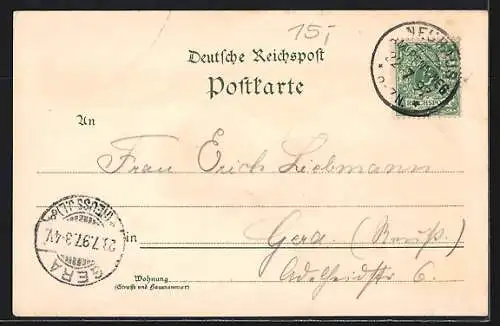 15,-
Deutsche Reichspost
Postkarte
An
Frau Erich Liebmann
in Gera (Reuß).
Adelheidstr 6.
Wohnung
(Straße und Hausnummer)
REICHSPOST
GERA
(REUSS J.L.)
23.7.97. 3-4 V.